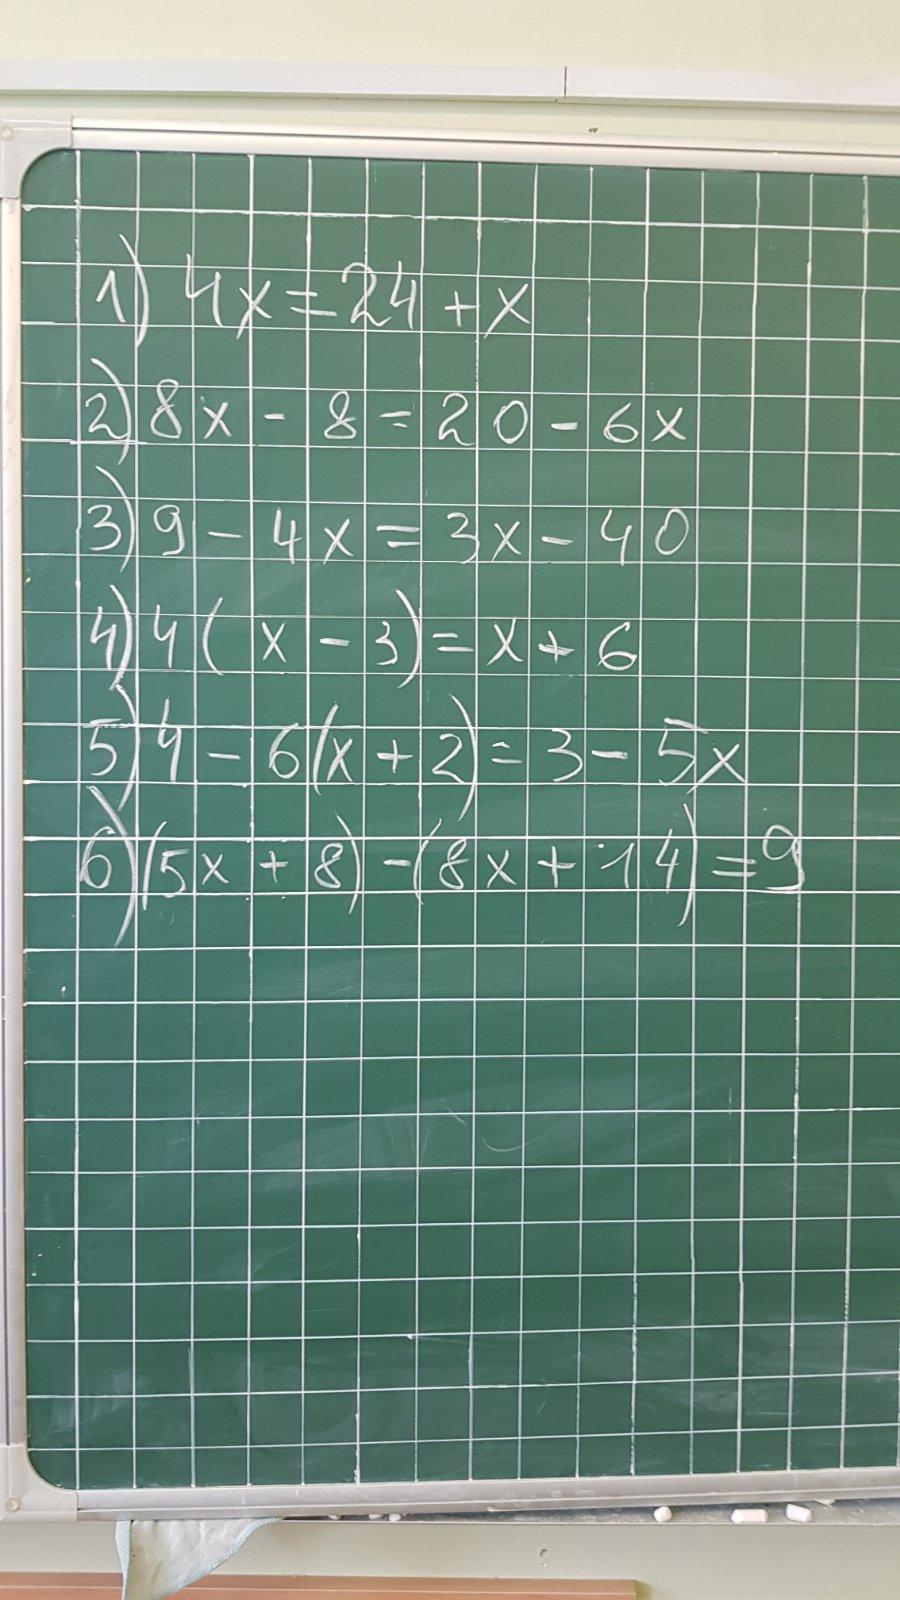 1) 4x = 24 + x
2) 8x - 8 = 20 - 6x
3) 9 - 4x = 3x - 40
4) 4(x - 3) = x + 6
5) 4 - 6(x + 2) = 3 - 5x
6) (5x + 8) - (8x + 14) = 9